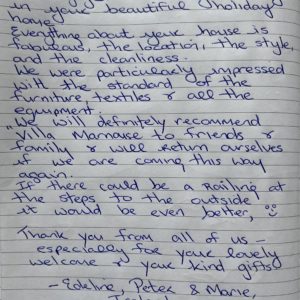 in your beautiful holiday
home
Everything about your house is
fabulous, the location, the style,
and the cleanliness.
We were particularly impressed
with the standard of the
furniture, textiles & all the
equipment.
"We will definitely recommend
Villa Marnaise to friends &
family & will return ourselves
if we are coming this way
again.
If there could be a Railing at
the steps to the outside
it would be even better, ☺
Thank you from all of us –
especially for your lovely
welcome & your kind gifts
- Edeline, Peter & Marie,